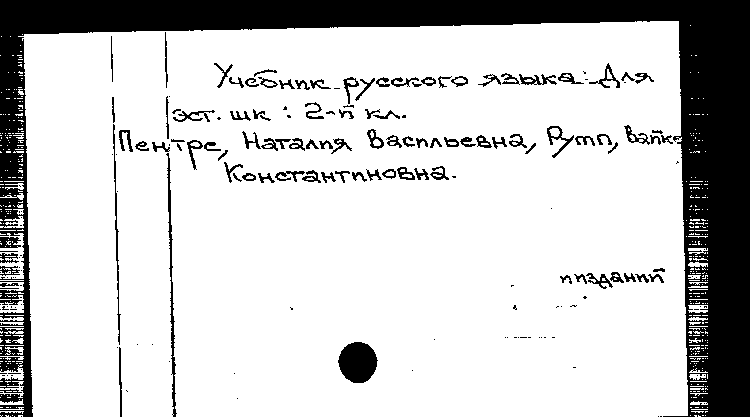 Учебник русского языка: Для
эст. шк : 2-й кл.
Пентре, Наталия Васильевна, Рутт, Вайке
Константиновна.
п изданий